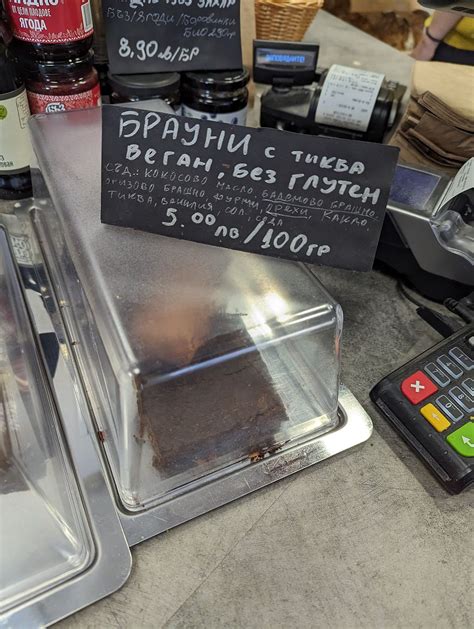 ОТ ЦЕЛИ ПЛОДОВЕ
ЯГОДА
БЕЗ/ЯГОДИ/БОРОВИНКИ
8,90 ЛВ/БР
ЗАПОВЯДАЙТЕ!
БРАУНИ С ТИКВА
ВЕГАН, БЕЗ ГЛУТЕН
СЪД.: КОКОСОВО МАСЛО, БАДЕМОВО БРАШНО,
ОРИЗОВО БРАШНО, ФУРМИ, ОРЕХИ, КАКАО,
ТИКВА, ВАНИЛИЯ, СОЛ, СОДА
5.00 ЛВ/100ГР